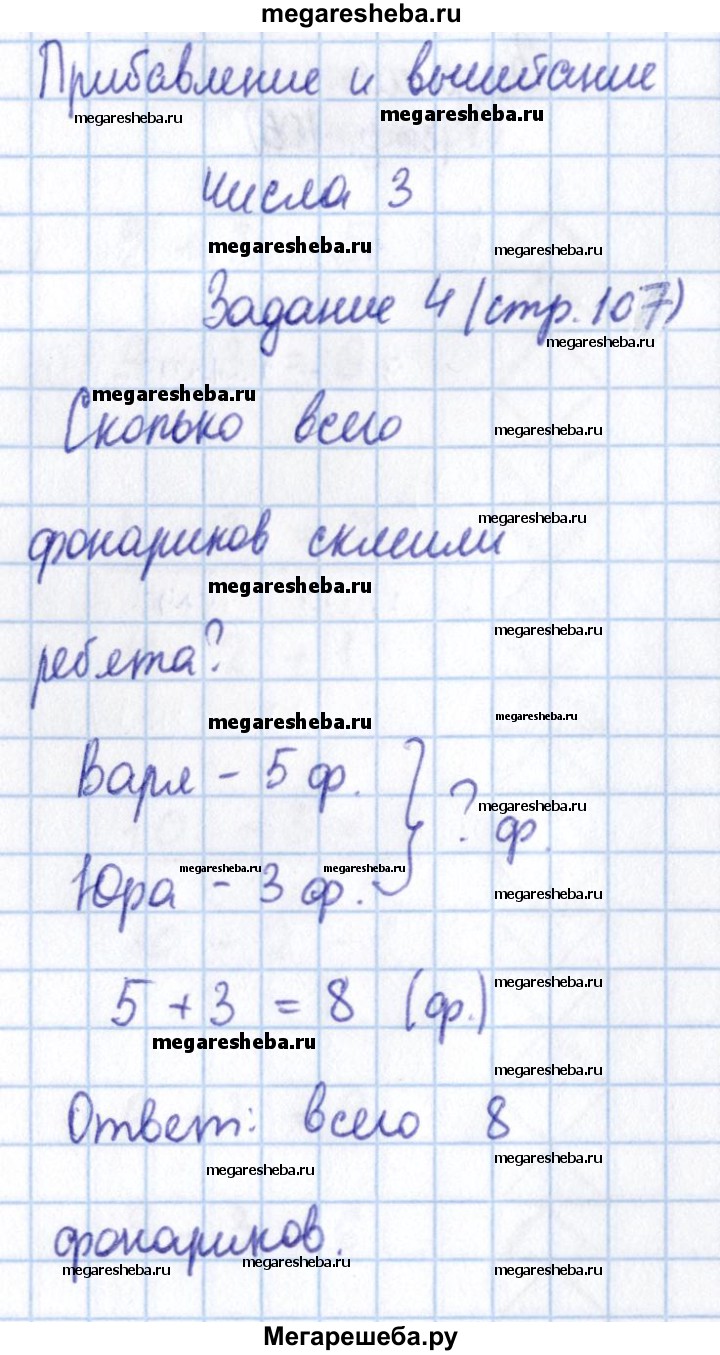 megaresheba.ru
Прибавление и вычитание
megaresheba.ru
megaresheba.ru
megaresheba.ru
числа 3
megaresheba.ru
megaresheba.ru
Задание 4 (стр. 107)
megaresheba.ru
megaresheba.ru
Сколько всего
megaresheba.ru
megaresheba.ru
фонариков склеили
megaresheba.ru
megaresheba.ru
ребята?
megaresheba.ru
megaresheba.ru
Варя - 5 ф.
megaresheba.ru
? ф.
megaresheba.ru
megaresheba.ru
Юра - 3 ф.
megaresheba.ru
megaresheba.ru
5 + 3 = 8 (ф.)
megaresheba.ru
megaresheba.ru
Ответ: всего 8
megaresheba.ru
megaresheba.ru
фонариков.
megaresheba.ru
megaresheba.ru
megaresheba.ru
Мегарешеба.ру